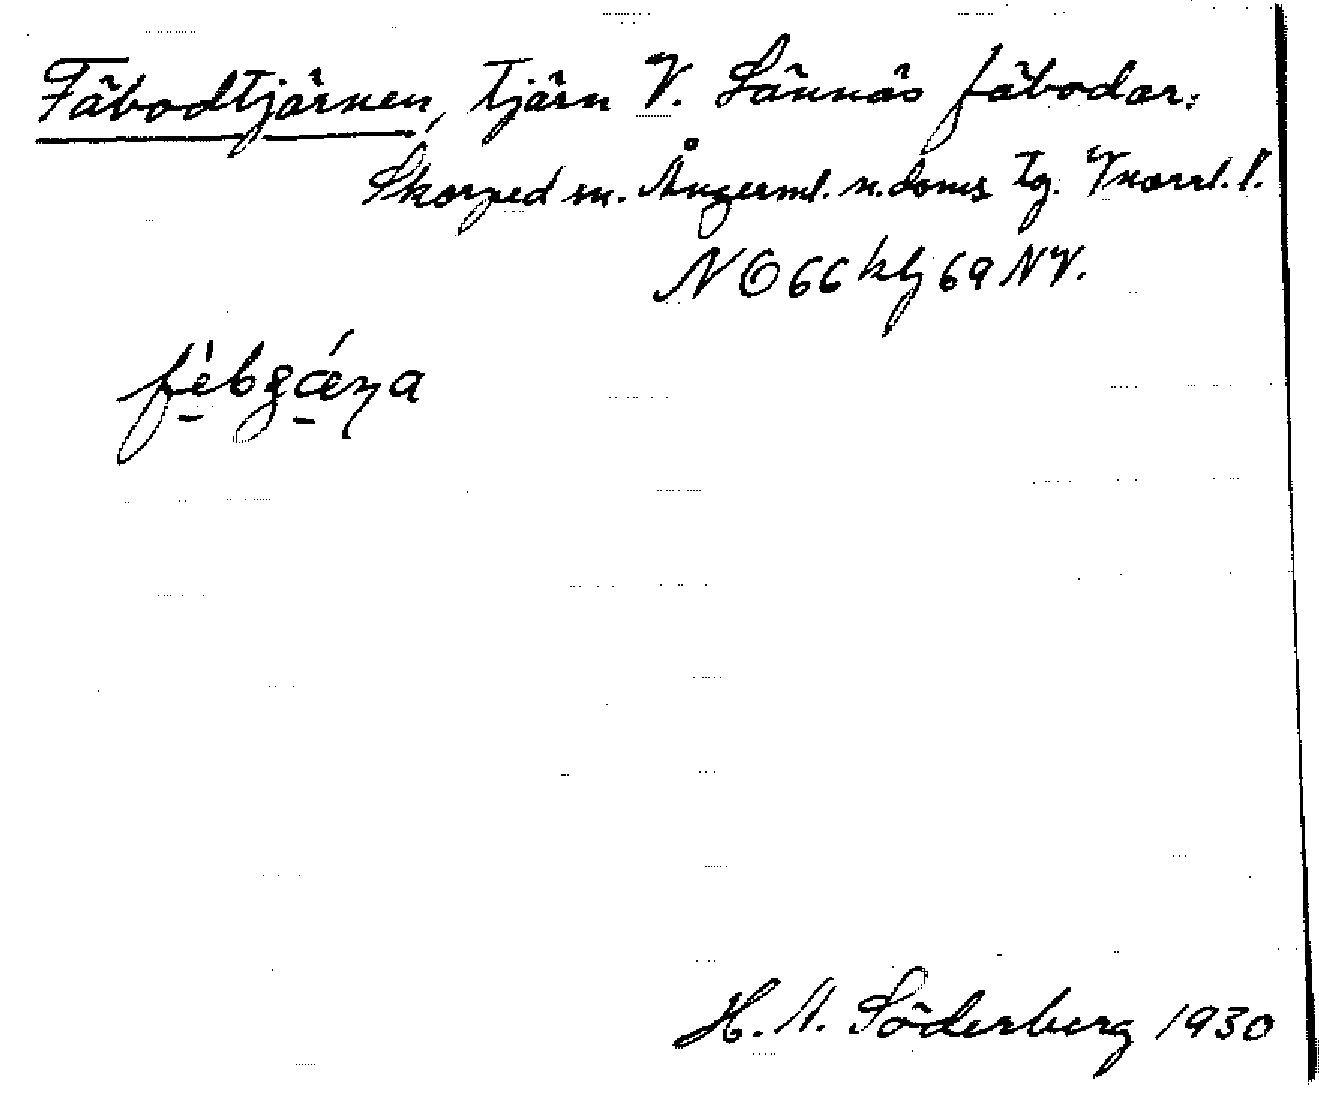 Fäbodtjärnen, tjärn V. Sännås fäbodar.
Skorped sn. Ångerml. n. doms tg. Vnorrl. l.
N Ö 66 hbg 69 NV.
H. N. Söderberg 1930